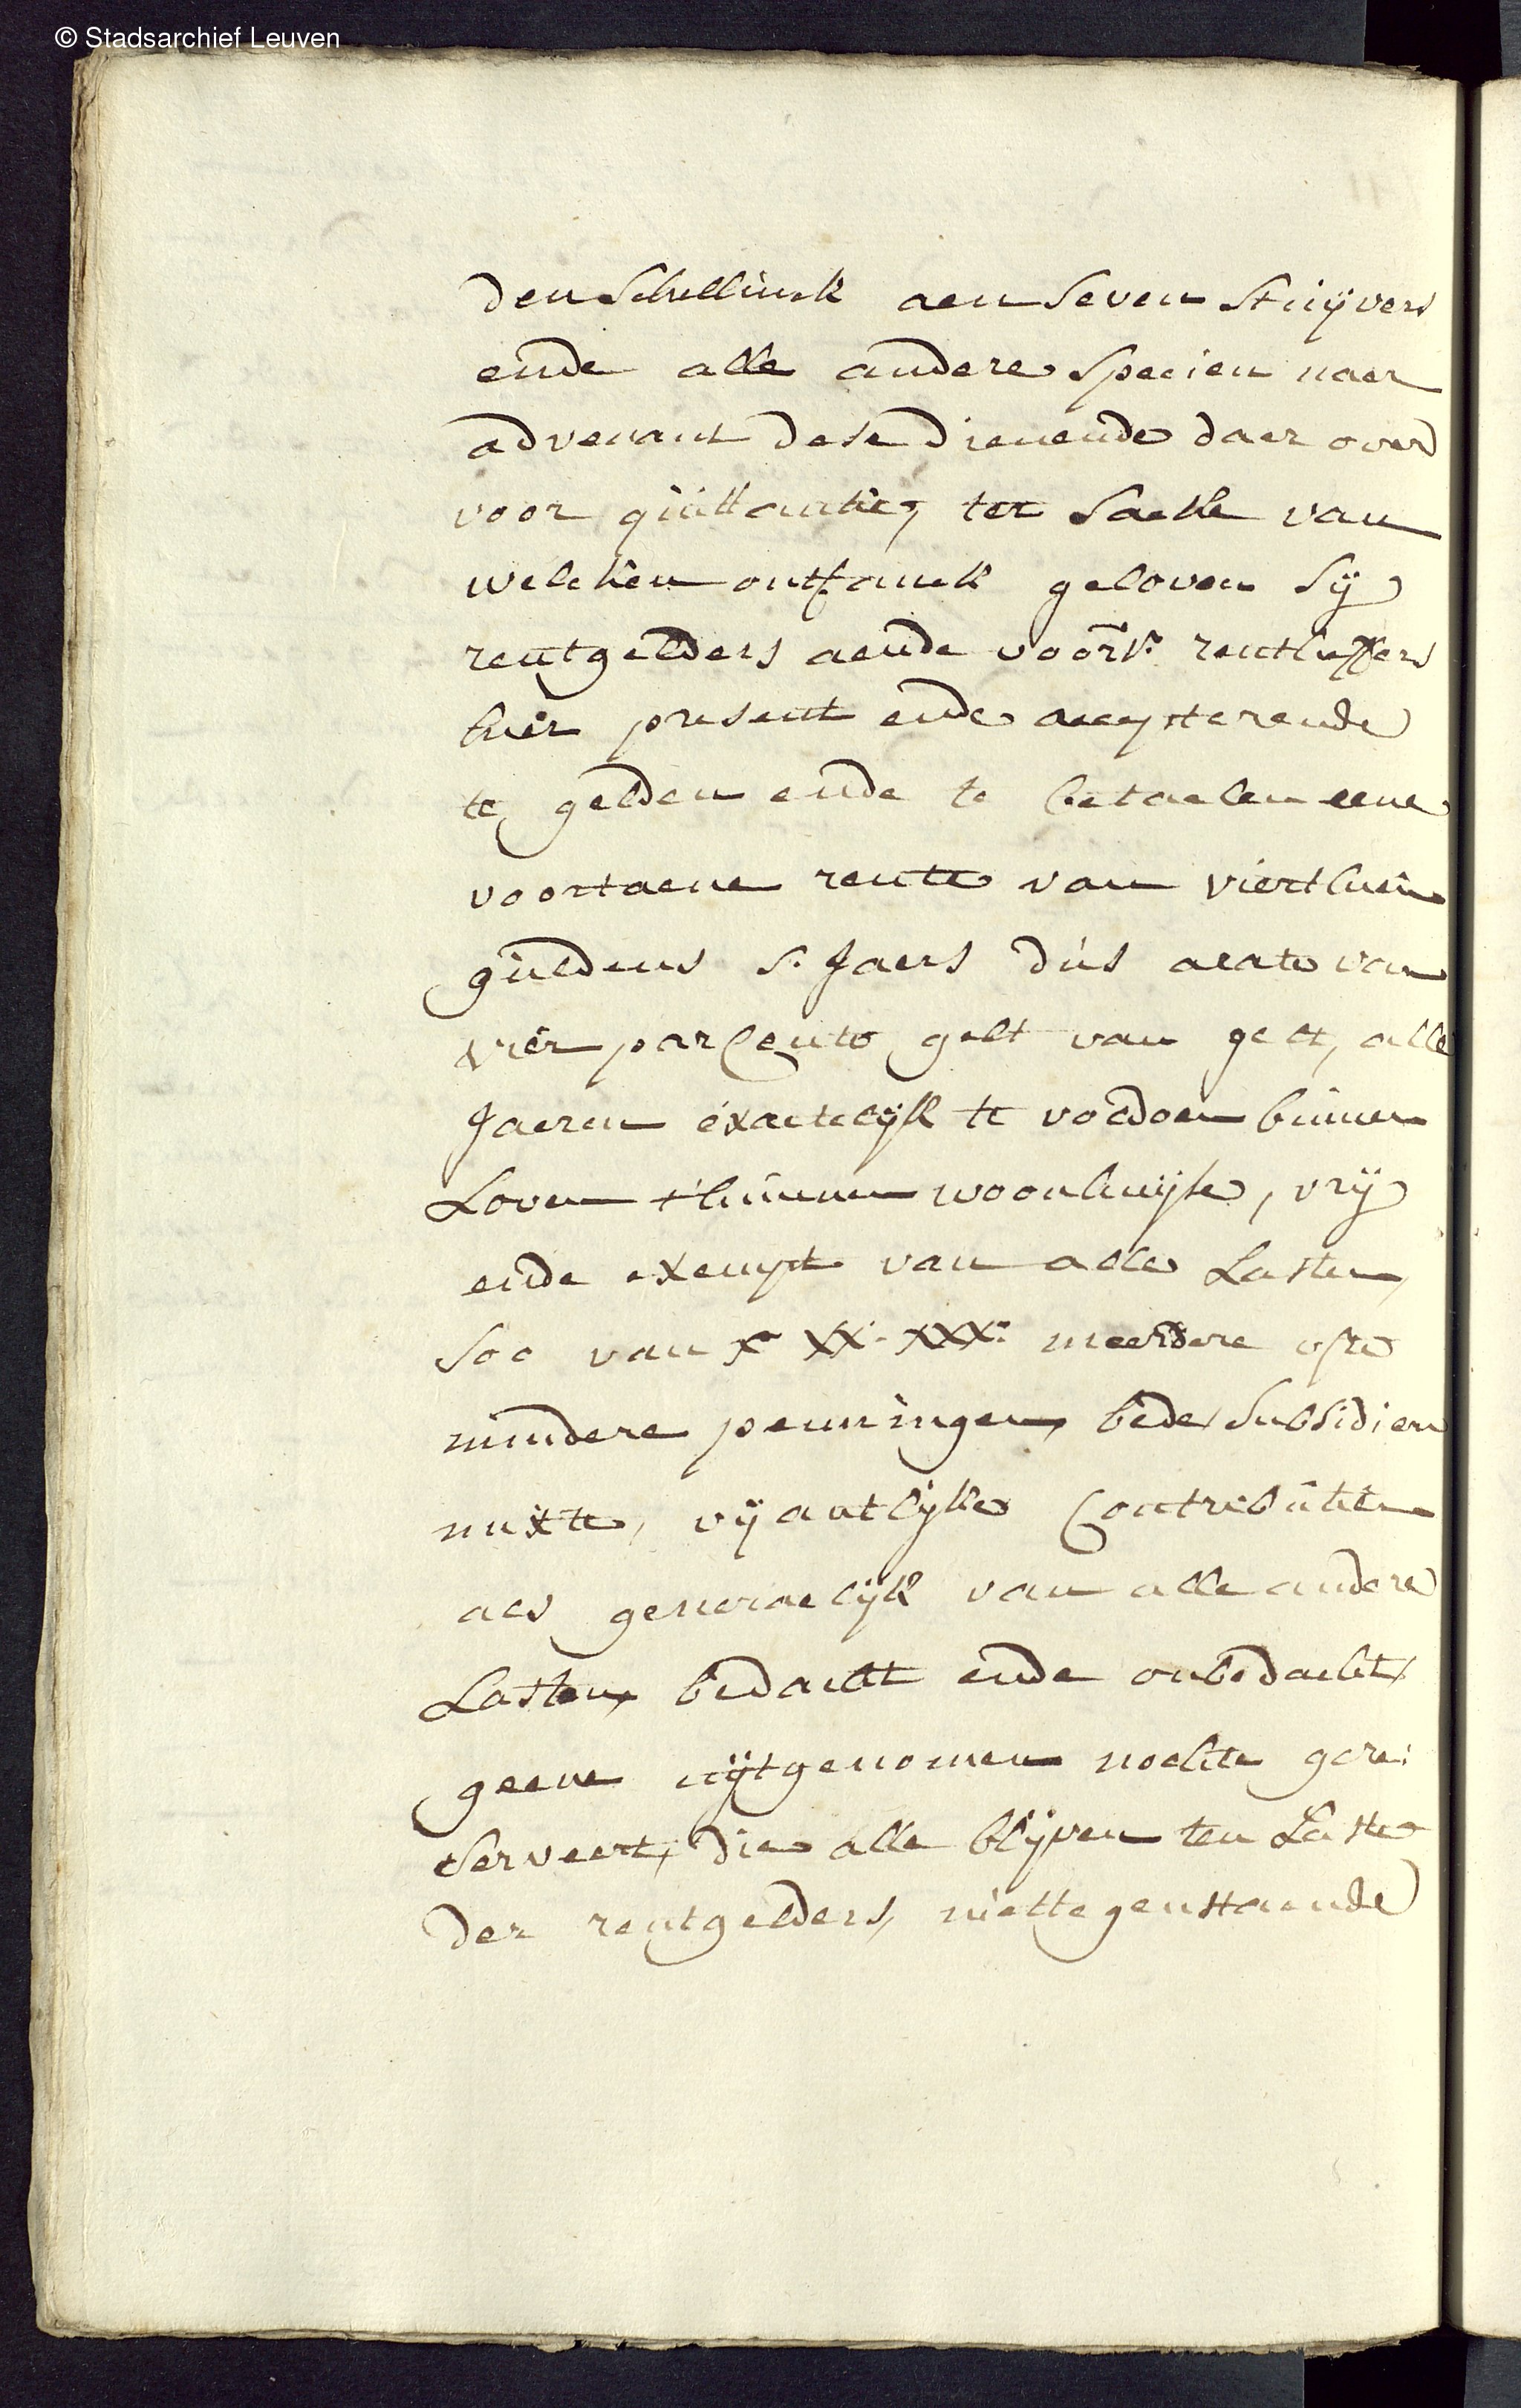 © Stadsarchief Leuven
den schellinck aen seven stuijvers
ende alle andere specien naer
advenant dese dienende daer over
voor quittantie, ter saecke van
welcken ontfanck geloven sij
rentgelders aende voors. rentheffers
hier present ende accepterende
te gelden ende te betaelen eene
voortaene rente van vierthien
guldens s. Jaers dus arate van
vier par cento gelt van gelt, alle
Jaeren exactelijk te voldoen binnen
Loven t'hunnen woonhuijse, vrij
ende exempt van alle Lasten,
soo van xe xxe xxxe meerdere ofte
mindere penningen, bede, subsidien
mixte, vijantlijke Contributien
als generaelijk van alle andere
Lasten, bedacht ende onbedacht,
geene uijtgenomen nochte gere:
serveert, die alle blijven ten Laste
der rentgelders, niettegenstaende